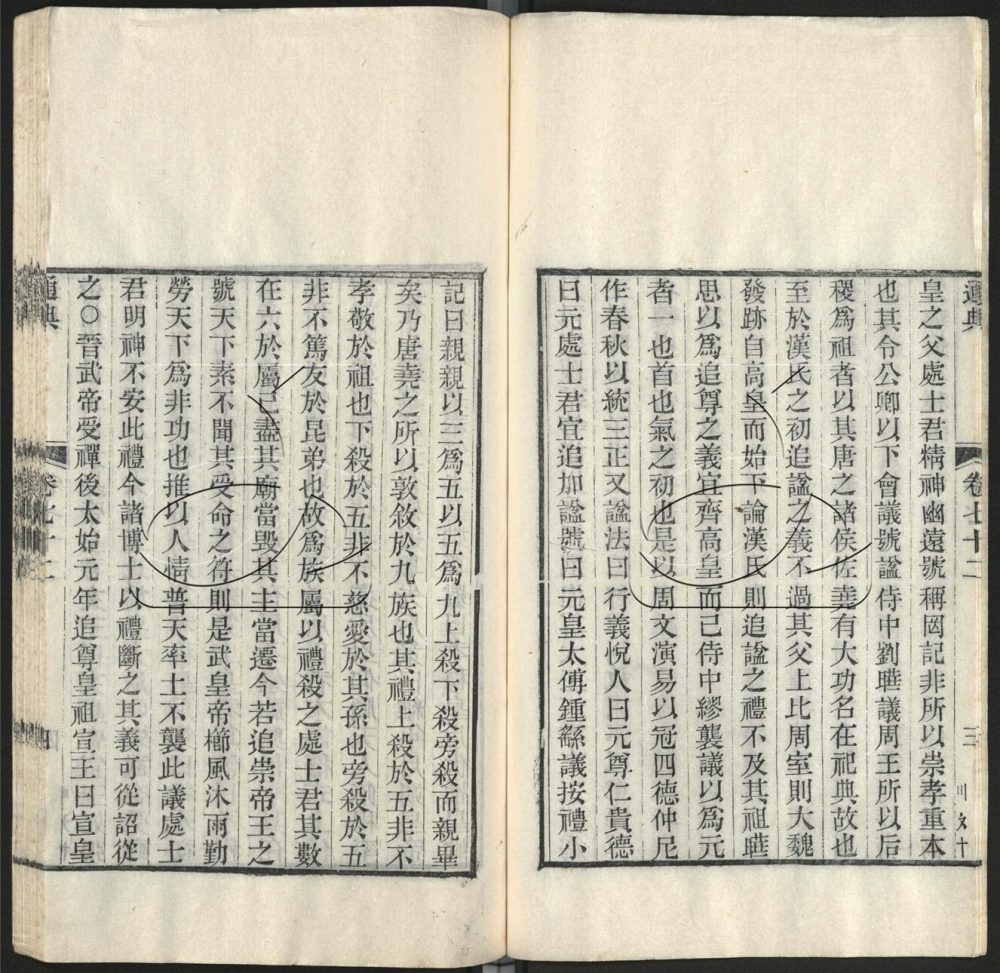 通典
卷七十二
三
皇之父處士君精神幽遠號稱罔記非所以崇孝重本
也其令公卿以下會議號諡侍中劉曄議周王所以后
稷爲祖者以其唐之諸侯佐堯有大功名在祀典故也
至於漢氏之初追諡之義不過其父上比周室則大魏
發跡自高皇而始下論漢氏則追諡之禮不及其祖曄
思以爲追尊之義宜齊高皇而已侍中繆襲議以爲元
者一也首也氣之初也是以周文演易以冠四德仲尼
作春秋以統三正又諡法曰行義悅人曰元尊仁貴德
曰元處士君宜追加諡號曰元皇太傅鍾繇議按禮小
記曰親親以三爲五以五爲九上殺下殺旁殺而親畢
矣乃唐堯之所以敦敘於九族也其禮上殺於五非不
孝敬於祖也下殺於五非不慈愛於其孫也旁殺於五
非不篤友於昆弟也故爲族屬以禮殺之處士君其數
在六於屬已盡其廟當毀其主當遷今若追崇帝王之
號天下素不聞其受命之符則是武皇帝櫛風沐雨勤
勞天下爲非功也推以人情普天率土不襲此議處士
君明神不安此禮今諸博士以禮斷之其義可從詔從
之○晉武帝受禪後太始元年追尊皇祖宣王曰宣皇
通典
卷七十二
四